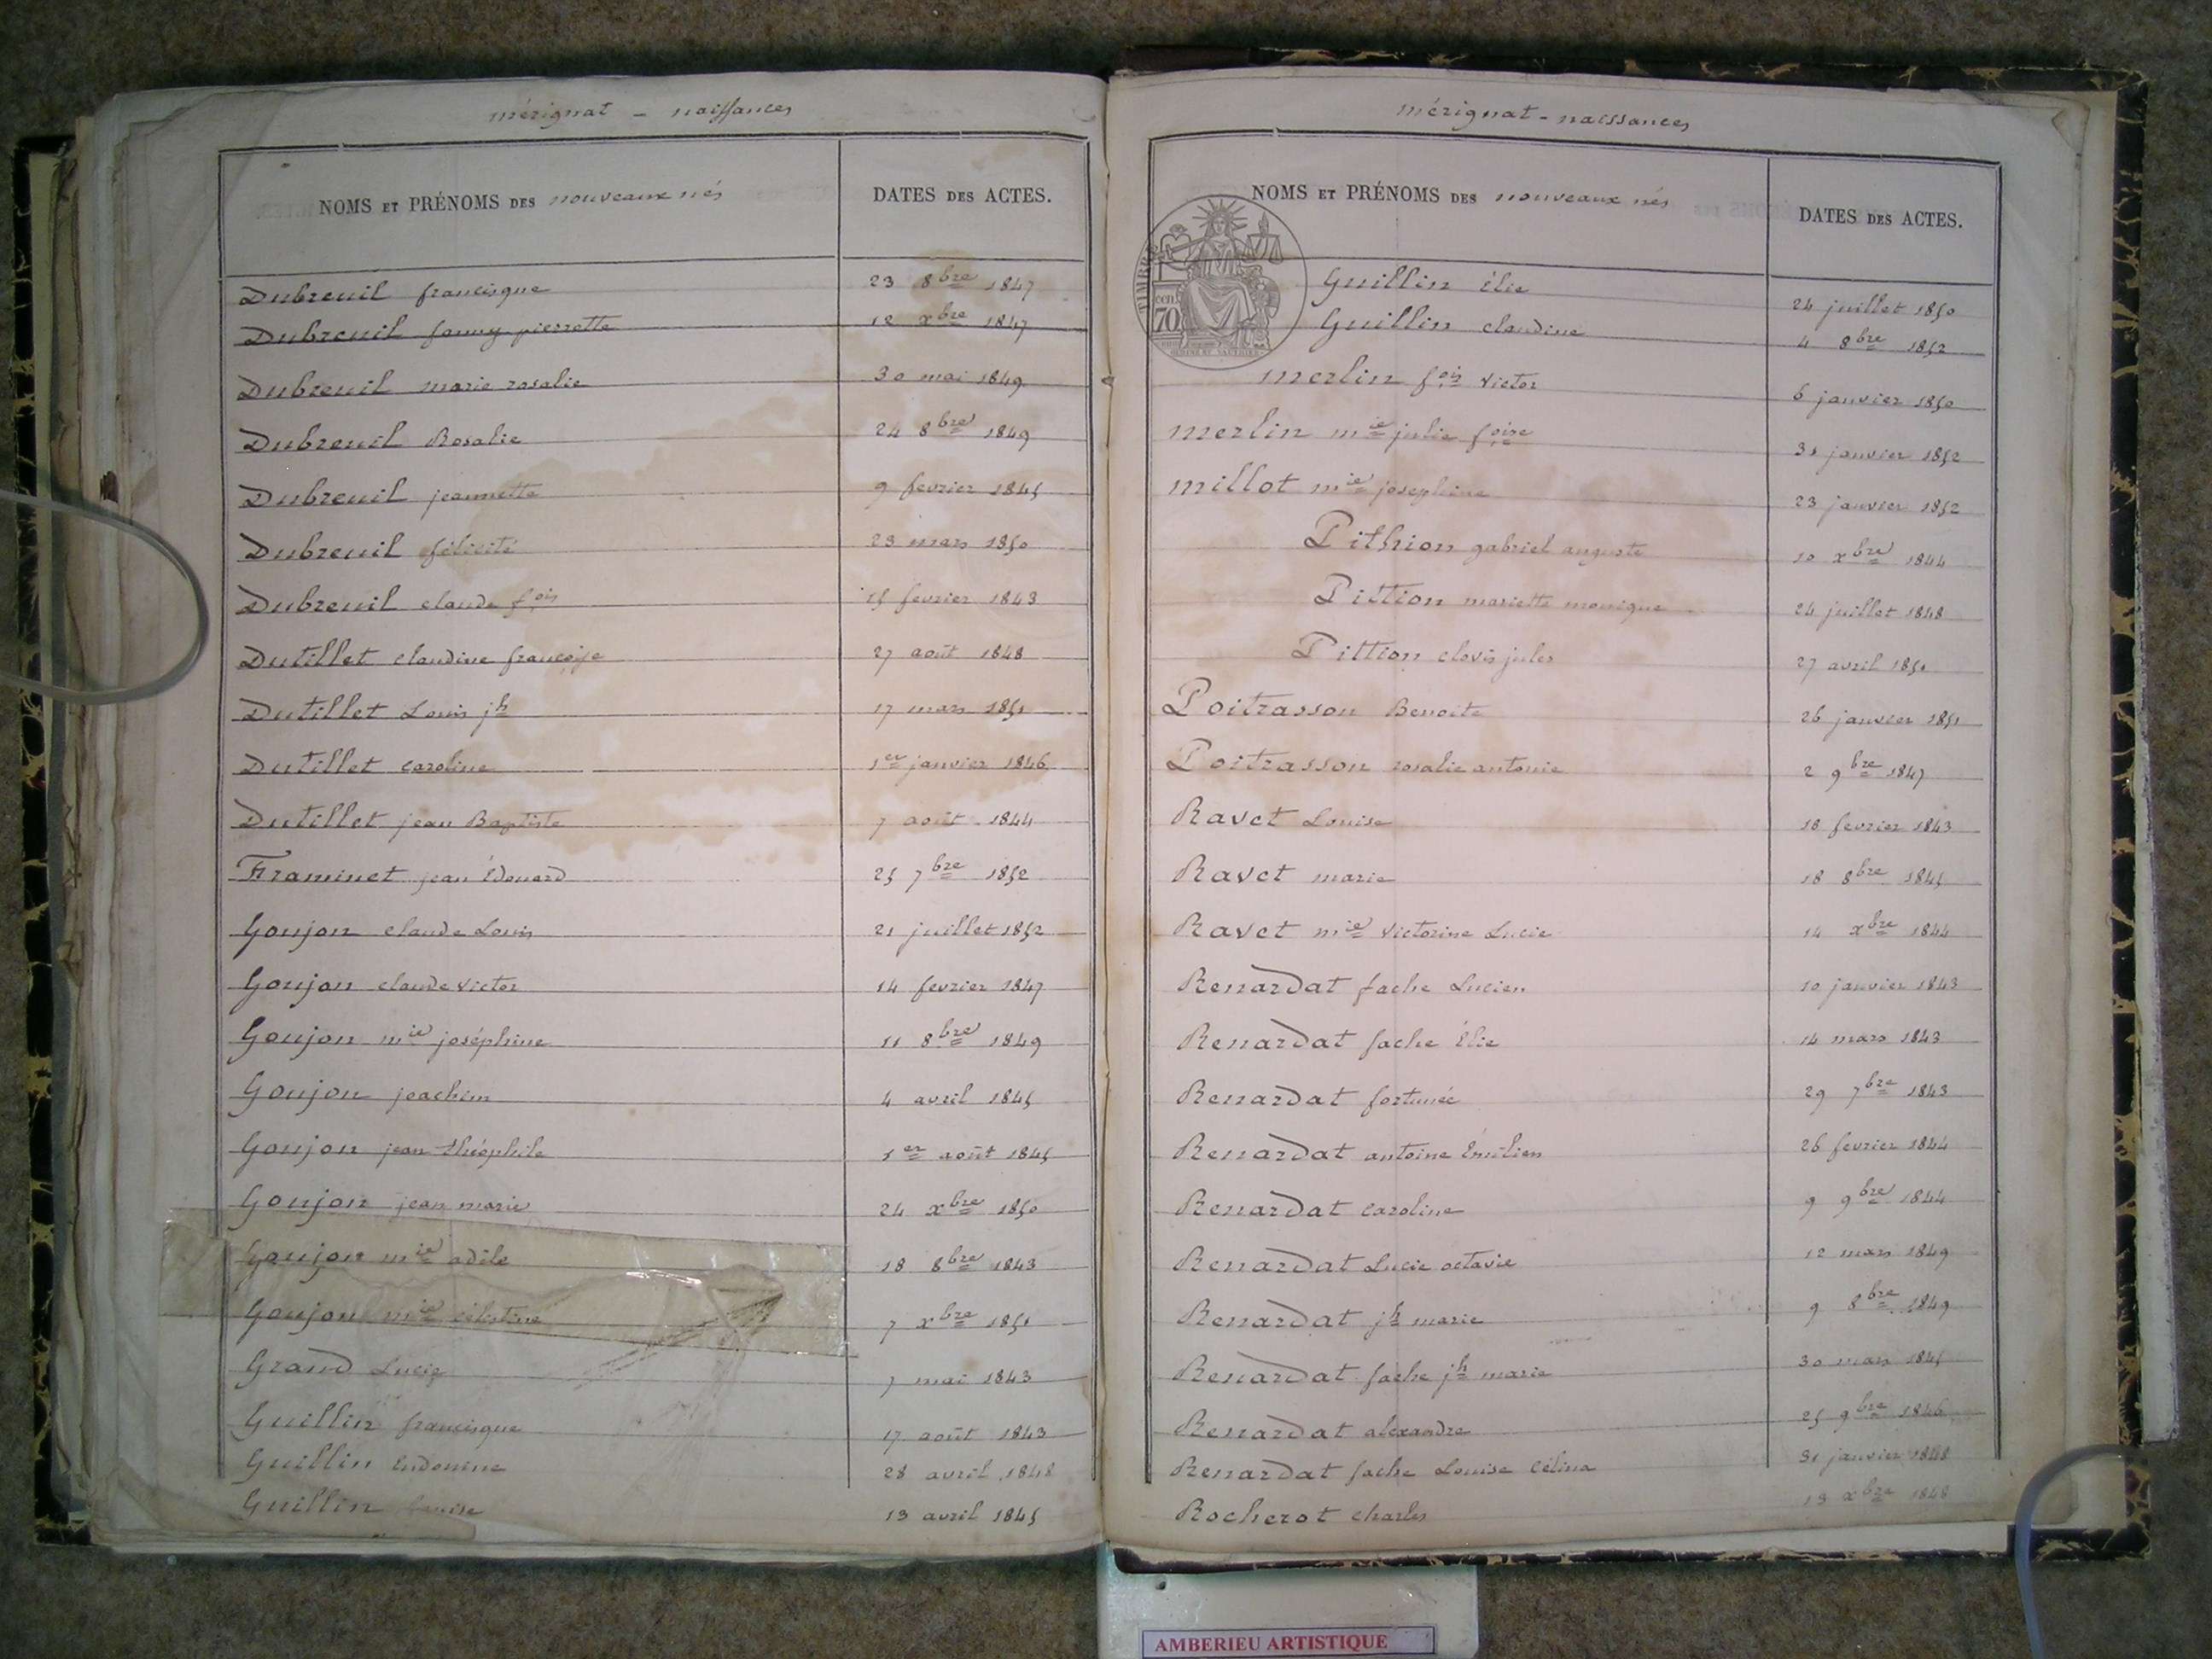 mérignat - naissances
NOMS ET PRÉNOMS DES nouveaux nés DATES DES ACTES.
Dubreuil francisque 23 8bre 1847
Dubreuil fanny pierrette 12 xbre 1847
Dubreuil marie rosalie 30 mai 1849
Dubreuil Rosalie 24 8bre 1849
Dubreuil jeannette 9 fevrier 1845
Dubreuil félicité 23 mars 1850
Dubreuil claude fois 15 fevrier 1843
Dutillet claudine françoise 27 août 1848
Dutillet Louis jh 17 mars 1851
Dutillet caroline 1er janvier 1846
Dutillet jean Baptiste 7 août 1844
Framinet jean Édouard 25 7bre 1852
Goujon claude Louis 21 juillet 1852
Goujon claude victor 14 fevrier 1847
Goujon mie joséphine 11 8bre 1849
Goujon joachim 4 avril 1845
Goujon jean théophile 1er août 1845
Goujon jean marie 24 xbre 1850
Goujon mie adèle 18 8bre 1843
Goujon mie célestine 7 xbre 1851
Grand Lucie 7 mai 1843
Guillin francisque 17 août 1843
Guillin 28 avril 1848
Guillin Louise 13 avril 1845
mérignat - naissances
NOMS ET PRÉNOMS DES nouveaux nés DATES DES ACTES.
TIMBRE
70 cen
Guillin Élie 24 juillet 1850
Guillin claudine 4 8bre 1852
merlin fois victor 6 janvier 1850
merlin mie julie foise 31 janvier 1852
millot mie josephine 23 janvier 1852
Pithion gabriel auguste 10 xbre 1844
Pittion mariette monique 24 juillet 1848
Pittion clovis jules 27 avril 1851
Poitrasson Benoite 26 janvier 1851
Poitrasson rosalie antonie 2 9bre 1847
Ravet Louise 18 fevrier 1843
Ravet marie 18 8bre 1845
Ravet mie victorine Lucie 14 xbre 1844
Renardat fache Lucien 10 janvier 1843
Renardat fache Élie 14 mars 1843
Renardat fortunée 29 7bre 1843
Renardat antoine Émilien 26 fevrier 1844
Renardat caroline 9 9bre 1844
Renardat Lucie octavie 12 mars 1849
Renardat jh marie 9 8bre 1849
Renardat fache jh marie 30 mars 1845
Renardat alexandre 25 9bre 1846
Renardat fache Louise Célina 31 janvier 1848
Rocherot charles 13 xbre 1848
AMBERIEU ARTISTIQUE